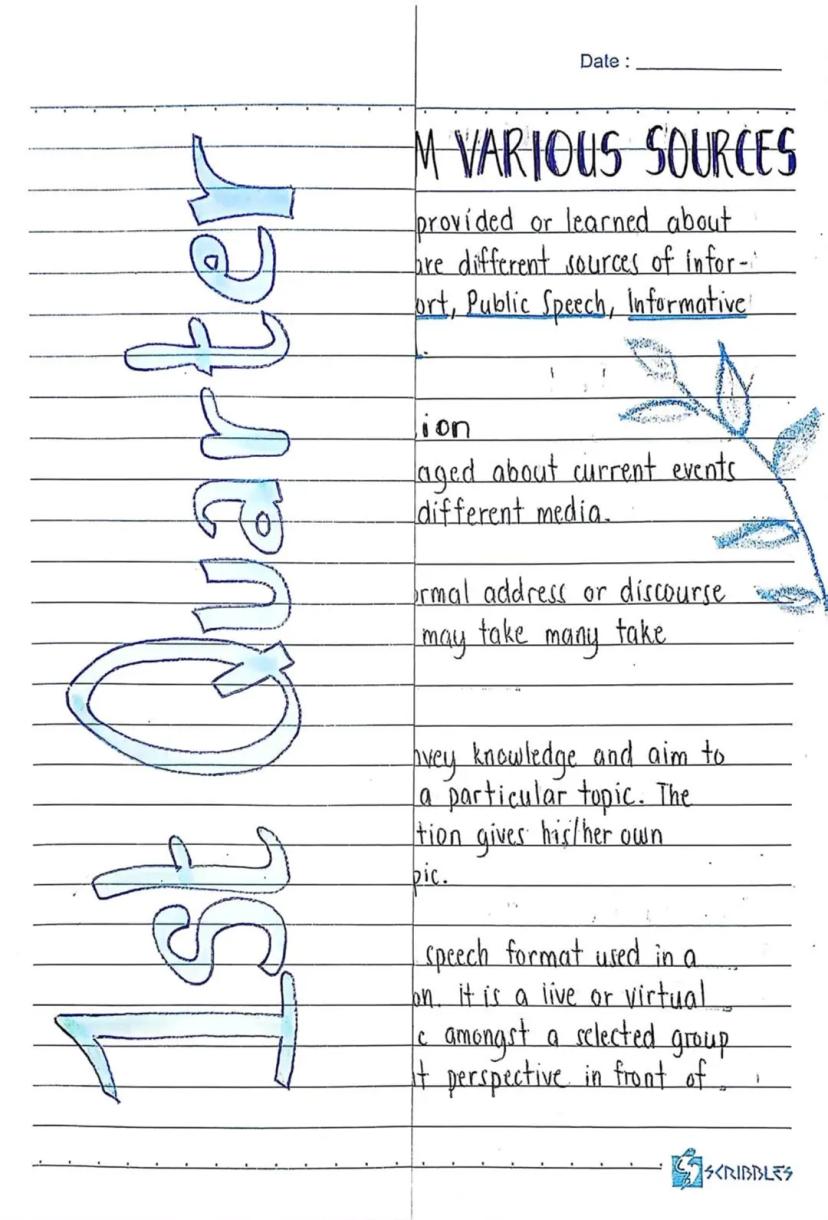 Date :
1st Quarter
M VARIOUS SOURCES
provided or learned about
are different sources of infor-
ort, Public Speech, Informative
l.
ion
aged about current events
different media.
ormal address or discourse
may take many take
nvey knowledge and aim to
a particular topic. The
tion gives his/her own
pic.
speech format used in a
on. it is a live or virtual
c amongst a selected group
t perspective in front of
SCRIBBLES